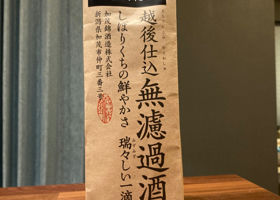 越後仕込
無濾過酒
しぼりくちの鮮やかさ
瑞々しい一滴
加茂錦酒造株式会社
新潟県加茂市仲町三番三号